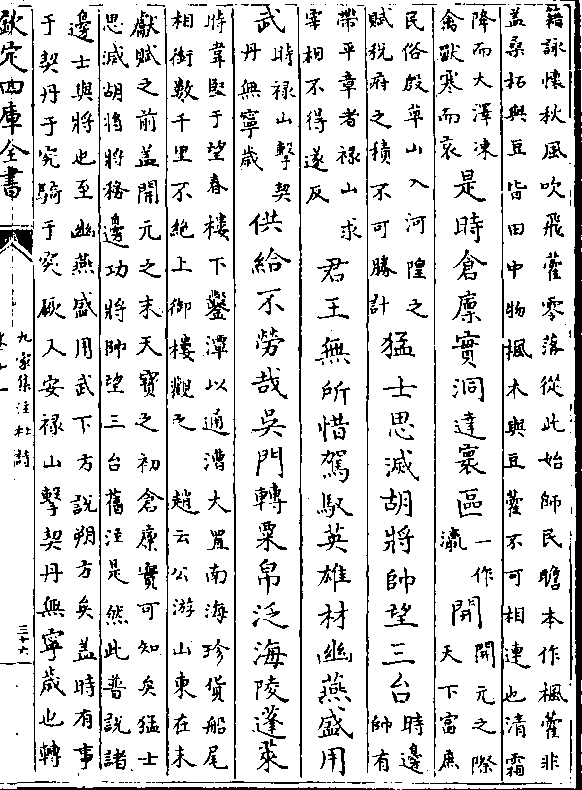 籍詠懷秋風吹飛藿零落從此始師民瞻本作楓藿非
盖桑柘與豆皆田中物楓木與豆藿不可相連也清霜
降而大澤凍
禽獸寒而哀
是時倉廩實洞達寰區
一作
瀛
開
開元之際
天下富庶
民俗殷阜山入河隍之
賦稅府之積不可勝計
猛士思滅胡將帥望三台
時邊
帥有
帶平章者禄山求
宰相不得遂反
君王無所惜駕馭英雄材幽燕盛用
武
時禄山擊契
丹無寧歲
供給不勞哉吳門轉粟帛泛海陵蓬萊
時韋堅于望春樓下鑿潭以通漕大置南海珍貨船尾
相銜數千里不絶上御樓觀之 趙云公游山東在未
獻賦之前蓋開元之末天寶之初倉廩實可知矣猛士
思滅胡將將務邊功將帥望三台舊注是然此普說諸
邊士與將也至幽燕盛用武下方說朔方矣蓋時有事
于契丹于突騎于突厥入安禄山擊契丹無寧歲也轉
欽定四庫全書
九家集注杜詩
三十六